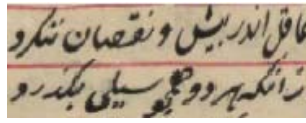 عاقل اندر بیش و نقصان ننگرد
زانکه هر دو همچو سیلی بگذرد